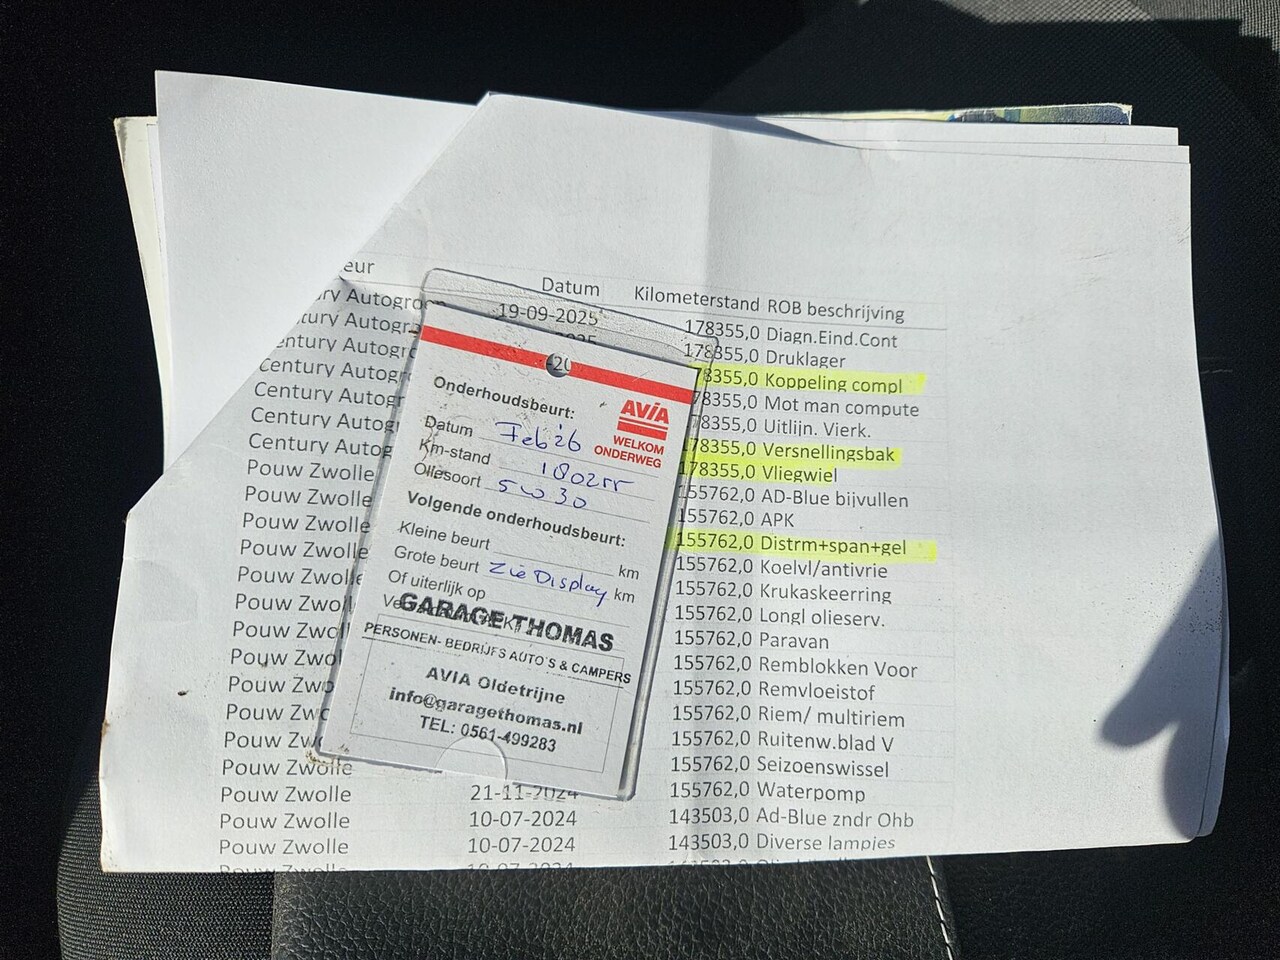 eur Datum Kilometerstand ROB beschrijving
ury Autogroep 19-09-2025 178355,0 Diagn.Eind.Cont
tury Autogro 178355,0 Druklager
entury Autogr 78355,0 Koppeling compl
Century Autog 78355,0 Mot man compute
Century Autog 78355,0 Uitlijn. Vierk.
Century Autog 178355,0 Versnellingsbak
Century Autog 178355,0 Vliegwiel
Pouw Zwolle 155762,0 AD-Blue bijvullen
Pouw Zwolle 155762,0 APK
Pouw Zwolle 155762,0 Distrm+span+gel
Pouw Zwolle 155762,0 Koelvl/antivrie
Pouw Zwolle 155762,0 Krukaskeerring
Pouw Zwol 155762,0 Longl olieserv.
Pouw Zwol 155762,0 Paravan
Pouw Zwol 155762,0 Remblokken Voor
Pouw Zwo 155762,0 Remvloeistof
Pouw Zwo 155762,0 Riem/ multiriem
Pouw Zwo 155762,0 Ruitenw.blad V
Pouw Zwolle 155762,0 Seizoenswissel
Pouw Zwolle 21-11-2024 155762,0 Waterpomp
Pouw Zwolle 10-07-2024 143503,0 Ad-Blue zndr Ohb
Pouw Zwolle 10-07-2024 143503,0 Diverse lampjes
Pouw Zwolle 10-07-2024 143503,0
Onderhoudsbeurt:
AVIA
WELKOM
ONDERWEG
Datum Feb '26
Km-stand
Oliesoort 5w30
Volgende onderhoudsbeurt:
Kleine beurt km
Grote beurt Zie Display km
Of uiterlijk op
GARAGE THOMAS
PERSONEN- BEDRIJFS AUTO'S & CAMPERS
AVIA Oldetrijne
info@garagethomas.nl
TEL: 0561-499283